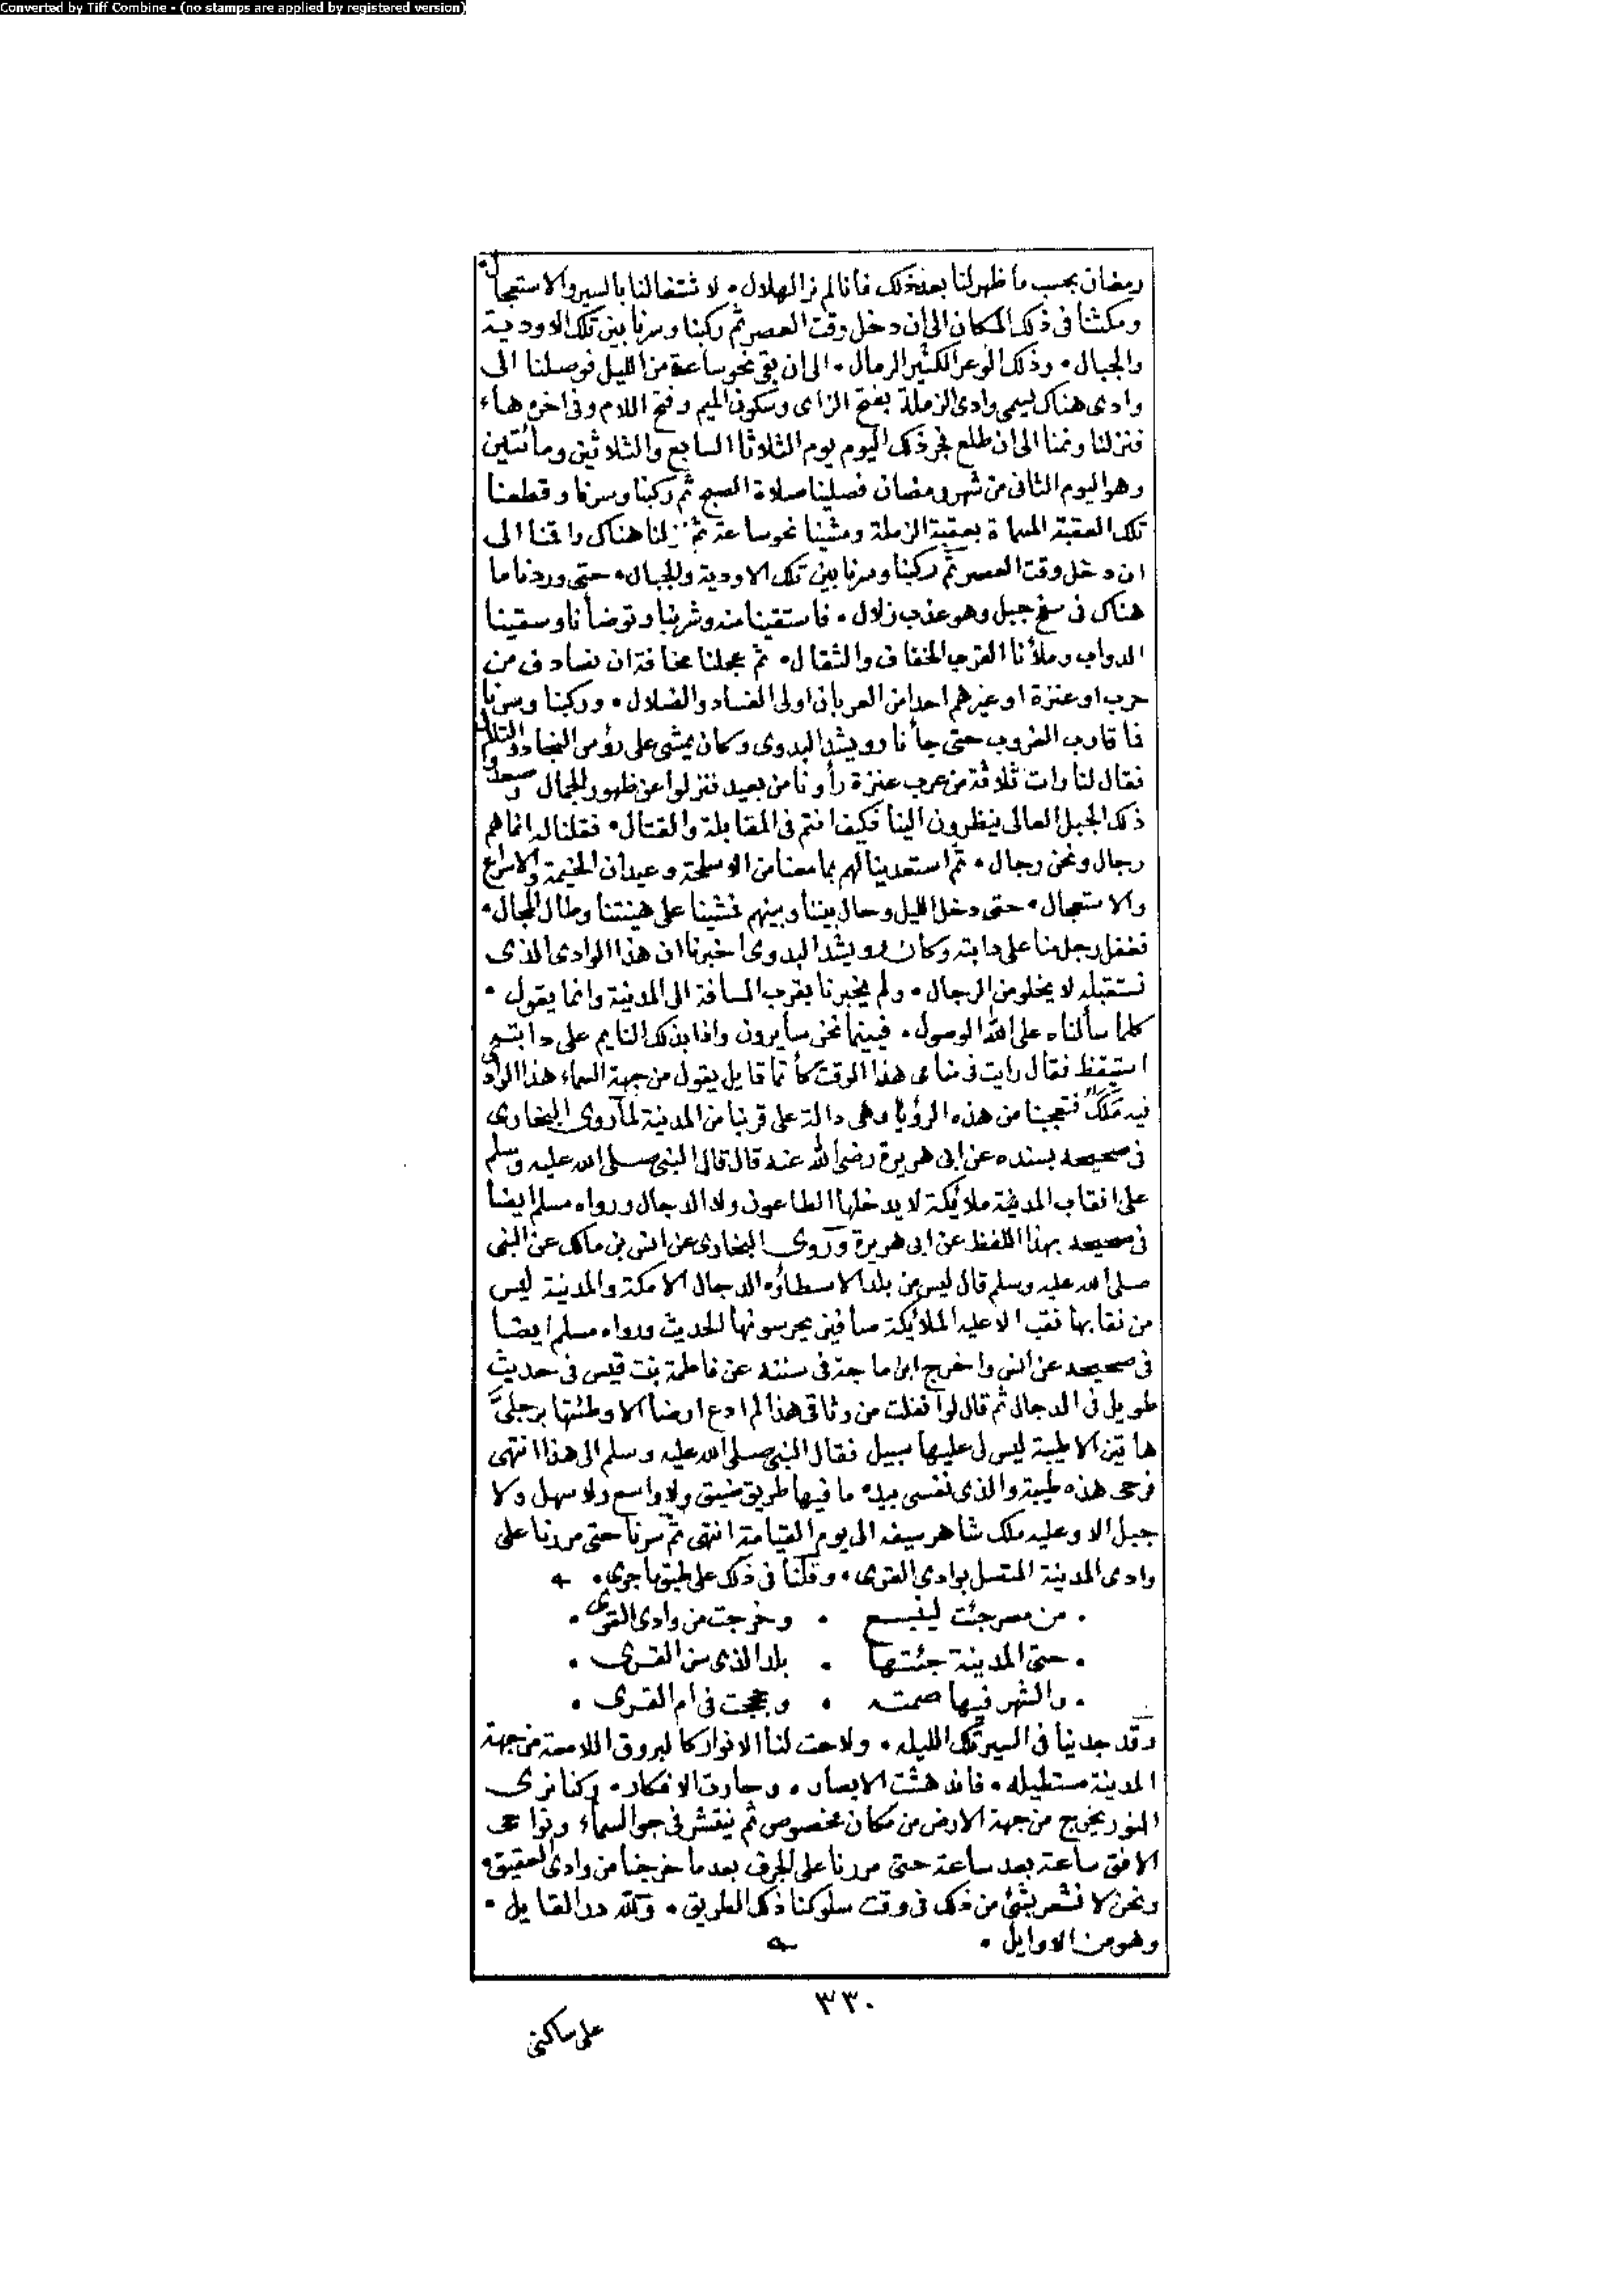 Converted by Tiff Combine - (no stamps are applied by registered version)
رمضان بحسب ما ظهر لنا بعد ذلك فانا لم نر الهلال • لاشتغالنا بالسير والاستعجال
ومكثنا فى ذلك المكان الى ان دخل وقت العصر ثم ركبنا وسرنا بين تلك الاودية
والجبال • وذلك الوعر الكثير الرمال • الى ان بقى نحو ساعة من الليل فوصلنا الى
وادى هناك يسمى وادى الزملة بفتح الزاى وسكون الميم وفتح اللام وفى اخره هاء
فنزلنا ونمنا الى ان طلع فجر ذلك اليوم يوم الثلاثا السابع والثلاثين ومائتين
وهو اليوم الثانى من شهر رمضان فصلينا صلاة الصبح ثم ركبنا وسرنا وقطعنا
تلك العقبة المسماة بعقبة الزملة ومشينا نحو ساعة ثم نزلنا هناك واقمنا الى
ان دخل وقت العصر ثم ركبنا وسرنا بين تلك الاودية والجبال • حتى وردنا ما
هناك فى سفح جبل وهو عذب زلال • فاستقينا منه وشربنا وتوضأنا وسقينا
الدواب وملأنا القرب الخفاف والثقال • ثم عجلنا مخافة ان نصادف من
حرب او عنزة او غيرهم احدا من العربان اولى الفساد والضلال • وركبنا وسرنا
فما قارب الغروب حتى جأنا رويشد البدوى وكان يمشى على رؤس النجاد والتلال
فقال لنا رايت ثلاثة من عرب عنزة رأونا من بعيد فنزلوا عن ظهور الجمال وصعدوا
ذلك الجبل العالى ينظرون الينا فكيف انتم فى المقابلة والقتال • فقلنا له انما هم
رجال ونحن رجال • ثم استعدينا لهم بما معنا من الاسلحة وعيدان الخيمة والاسراع
والاستعجال • حتى دخل الليل وحال بيننا وبينهم فمشينا على هينتنا وطال المجال •
فغفل رجل منا على دابته وكان رويشد البدوى اخبرنا ان هذا الوادى الذى
نستقبله لا يخلو من الرجال • ولم يخبرنا بقرب المسافة الى المدينة وانما يقول •
كلما سألناه على الله الوصول • فبينما نحن سايرون واذا بذلك النايم على دابته
استيقظ فقال رايت فى منامى هذا الوقت كأنما قايل يقول من جهة السماء هذا الوادى
فيه مَلَكٌ فتعجبنا من هذه الرؤيا وهى دالة على قربنا من المدينة لما روى البخارى
فى صحيحه بسنده عن ابى هريرة رضى الله عنه قال قال النبى صلى الله عليه وسلم
على انقاب المدينة ملائكة لا يدخلها الطاعون ولا الدجال ورواه مسلم ايضا
فى صحيحه بهذا اللفظ عن ابى هريرة وروى البخارى عن انس بن مالك عن النبى
صلى الله عليه وسلم قال ليس من بلد الا سيطاؤه الدجال الا مكة والمدينة ليس
من نقابها نقب الا عليه الملائكة صافين يحرسونها الحديث ورواه مسلم ايضا
فى صحيحه عن انس واخرج ابن ماجة فى سننه عن فاطمة بنت قيس فى حديث
طويل فى الدجال ثم قال لو انفلت من وثاقى هذا لم ادع ارضا الا وطئتها برجلىَّ
هاتين الا طيبة ليس لى عليها سبيل فقال النبى صلى الله عليه وسلم الى هذا انتهى
فرحى هذه طيبة والذى نفسى بيده ما فيها طريق ضيق ولا واسع ولا سهل ولا
جبل الا وعليه ملك شاهر سيفه الى يوم القيامة انتهى ثم سرنا حتى مررنا على
وادى المدينة المتصل بوادى القرى • وقلنا فى ذلك على طبق ما جرى •
• من مصر جئت لينبع • وخرجت من وادى القرى •
• حتى المدينة جئتها • بلد الذى سن القرى •
• والشهر فيها صمته • وحججت فى ام القرى •
وقد جدينا فى السير تلك الليله • ولاحت لنا الانوار كالبروق اللامعة من جهة
المدينة مستطيله • فاندهشت الابصار • وحارت الافكار • وكنا نرى
النور يخرج من جهة الارض من مكان مخصوص ثم ينتشر فى جو السماء ونواحى
الافق ساعة بعد ساعة حتى مررنا على الجرف بعد ما خرجنا من وادى العقيق •
ونحن لا نشعر بشئ من ذلك فى وقت سلوكنا ذلك الطريق • ولله در القايل •
وهو من الاوايل •
٣٣٠
على ساكنى